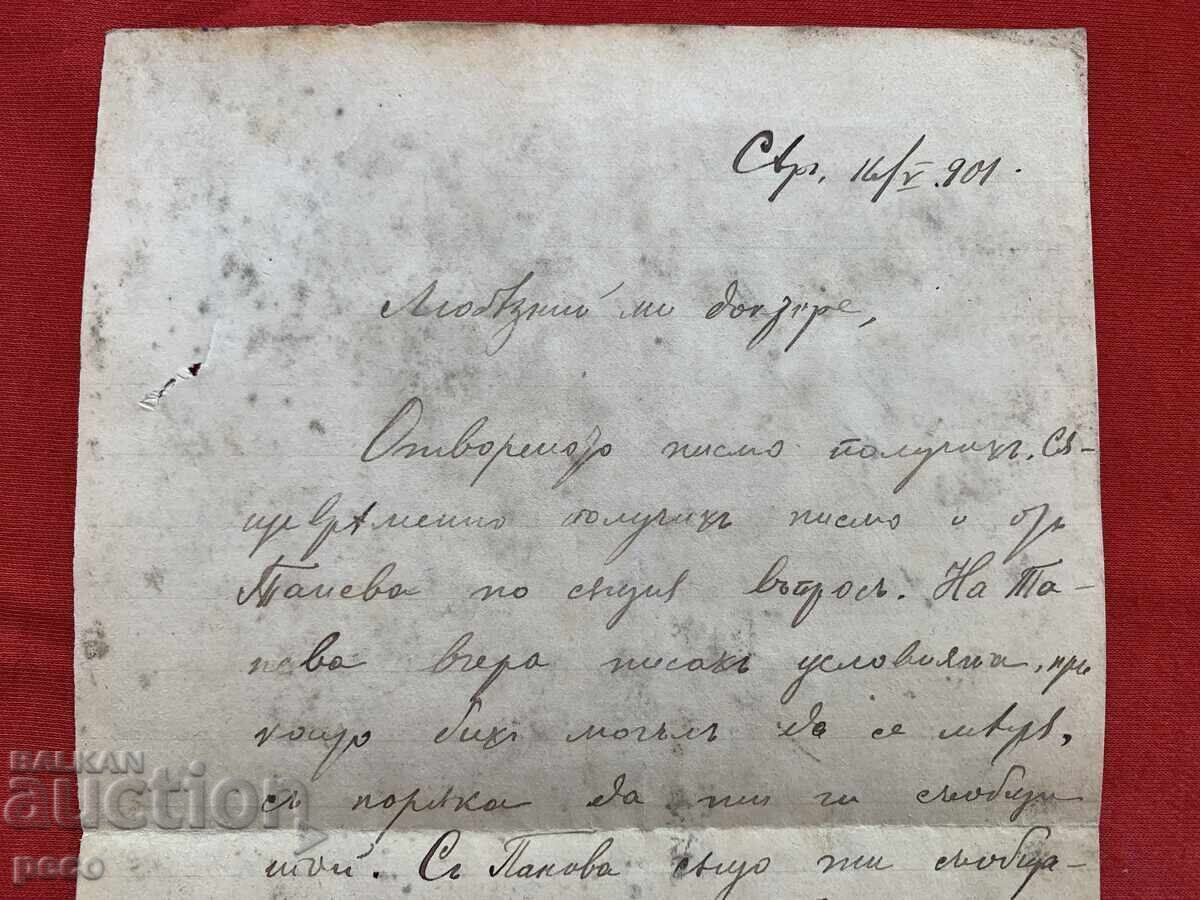 16/V 901.
Любѣзний ми докторе,
Отвореното писмо получихъ. Съ-
щеврѣменно получихъ писмо и отъ
Танева по същия въпросъ. На Та-
нева вчера писахъ условията, при
които бихъ могълъ да се
съ порѫка да ти ги съобщи
той. Съ Панова също ти съобща-
BALKAN
auction
peco